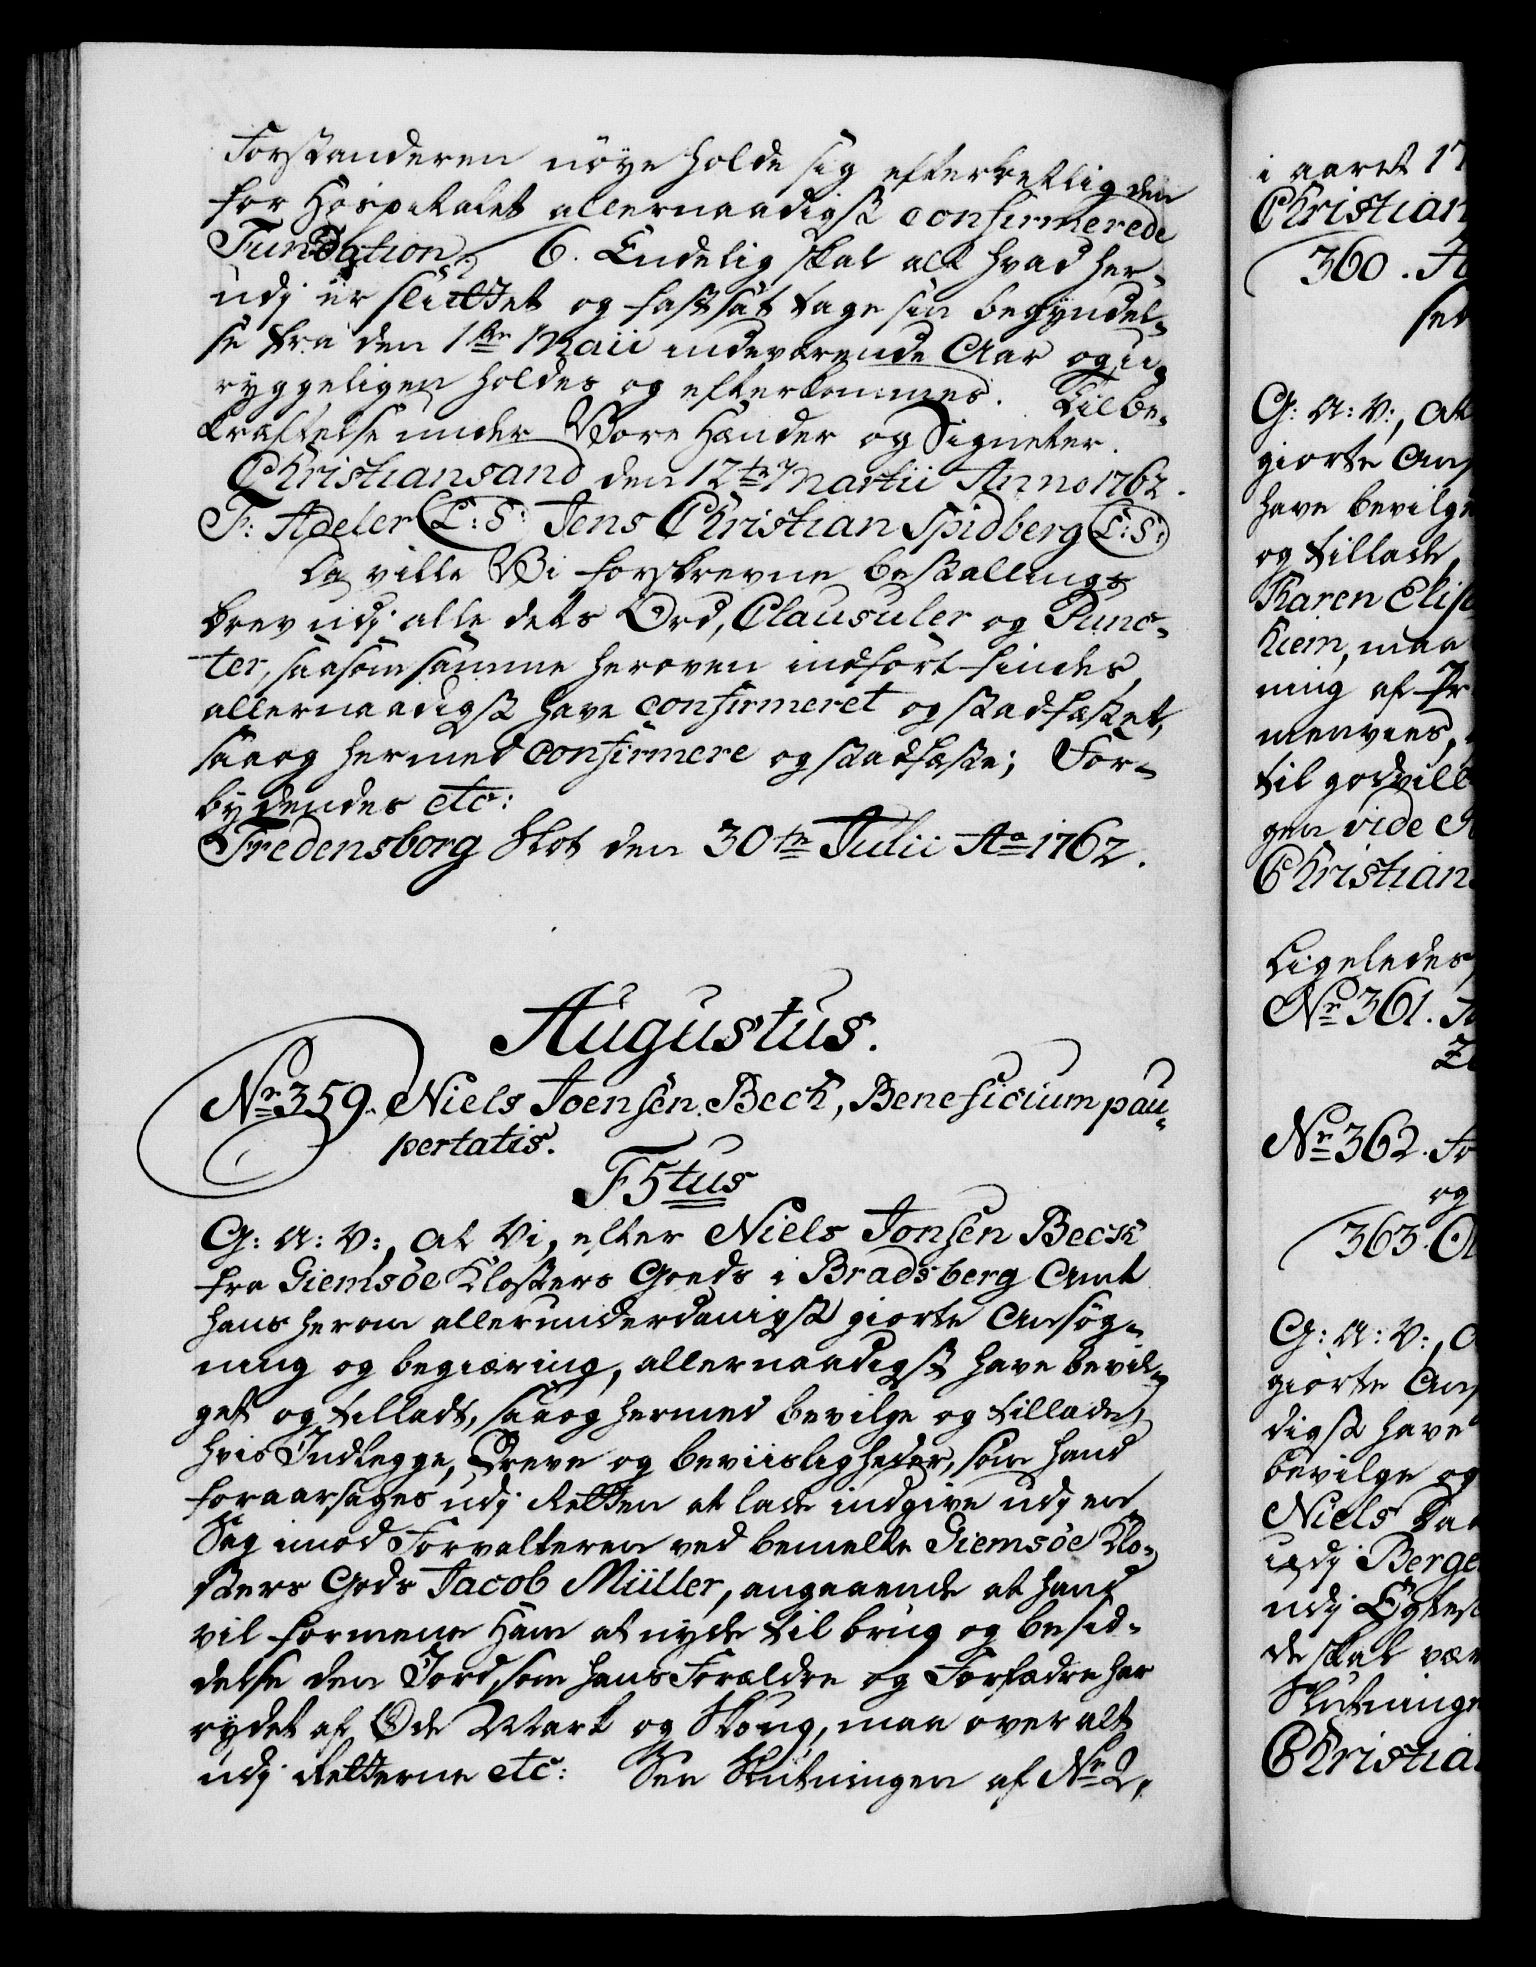 Forstanderen nöye holde sig efterretlig den
for Hospitalet allernaadigst confirmerede
Fundation. 6. Endelig skal alt hvad her-
udj er sluttet og fastsat tage sin begyndel-
se fra den 1ste Maii indeværende Aar og u-
ryggeligen holdes og efterkommes. Til be-
kræftelse under Vore Hænder og Signeter.
Christiansand den 12te Martii Anno 1762.
F: Adeler (L:S:) Jens Christian Spidberg (L:S:)
Da ville Vi forskrevne bestallings
brev udj alle dets Ord, Clausuler og Punc-
ter, saasom samme heroven indfört findes,
allernaadigst have confirmeret og stadfæstet,
saa og hermed confirmere og stadfæste; For-
bydendes etc:
Fredensborg Slot den 30te Julii Ao 1762.
Augustus.
Nr 359. Niels Joensen Beck, Beneficium pau-
pertatis.
F5tus
G: A: V:, at Vi, efter Niels Jonsen Beck
fra Giemsöe Klosters Goeds i Bradsberg Amt
hans herom allerunderdanigst giorte Ansög-
ning og begiæring, allernaadigst have bevil-
get og tilladt, saa og hermed bevilge og tillade,
hvis Indlegge, Breve og beviisligheder, som hand
foraarsages udj Retten at lade indgive udj en
Sag imod Forvalteren ved bemelte Giemsöe Klo-
sters Gods Jacob Müller, angaaende at hand
vil formene Ham at nyde til brug og besid-
delse den Jord, som hans Forældre og Forfædre har
rydet af Öde Mark og Skoug, maa over alt
udj Retterne etc: See Slutningen af Nr 2,
i aaret 17
Christian
360.
G: A: V:, at
giorte Ans
have bevilge
og tillade,
Karen Elisa
hiem, maa
ning af Pr
menvies,
til godvill
gen vide
Christian
Ligeledes
Nr 361.
Nr 362.
og
363.
G: A: V:,
giorte Ans
digst have
bevilge og
Niels
udj Berge
udj Egtes
de skal være
Slutninge
Christia